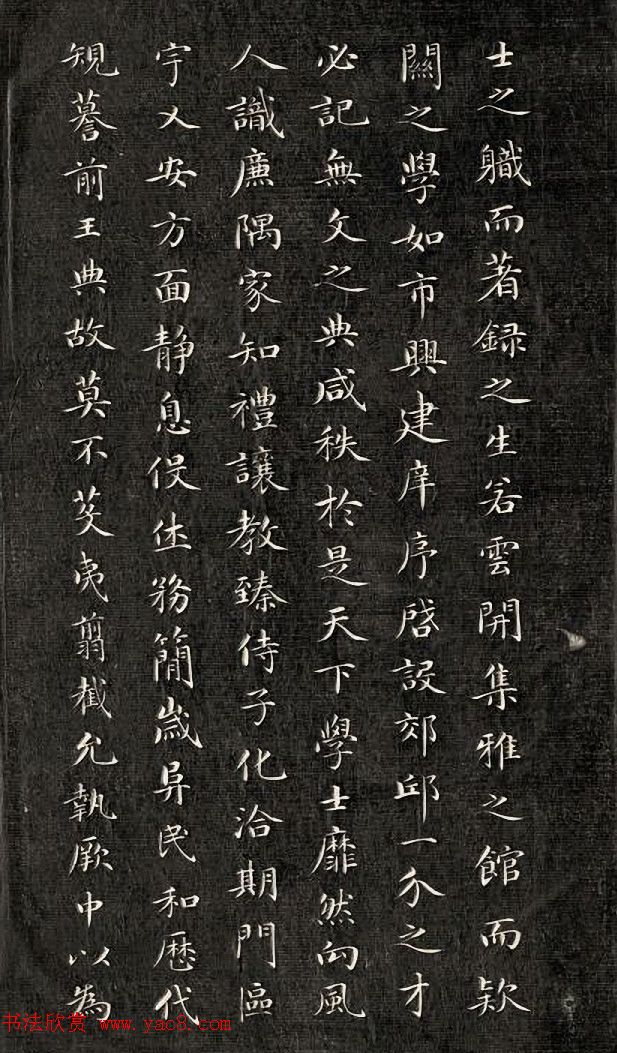 士之軄而著録之生若雲開集雅之館而欵
關之學如市興建庠序啓設郊邱一介之才
必記無文之典咸秩於是天下學士靡然向風
人識廉隅家知禮讓教臻侍子化洽期門區
宇乂安方面静息伇休務簡歲昇民和歷代
規謩前王典故莫不芟夷翦截允執厥中以為
书法欣赏 www.yac8.com